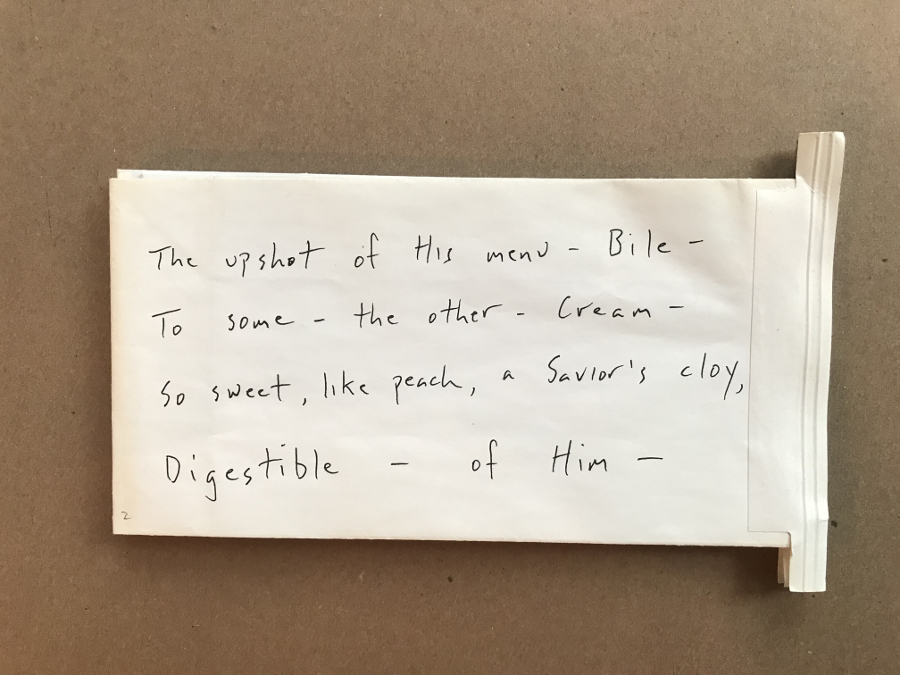 The upshot of His menu - Bile -
To some - the other - Cream -
So sweet, like peach, a Savior's cloy,
Digestible - of Him -
2